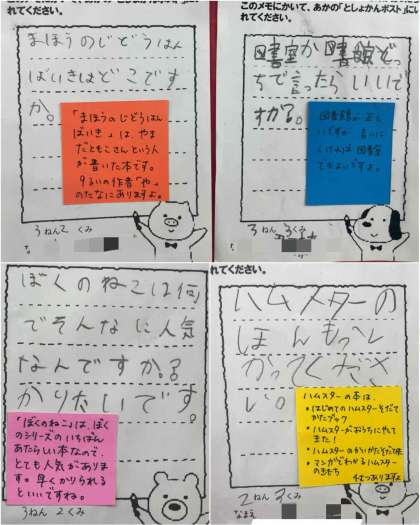 れてください。
まほうのじどうはん
ばいきはどこです
か。
「まほうのじどうはん
ばいき」は、やま
だともこさんという人
が書いた本です。
9るいの作者「や」
のたなにありますよ。
3ねん2くみ
な
このメモにかいて、あかの「としょかんポスト」にい
れてください。
図書室か図書館どっ
ちで言ったらいいで
すか?。
図書館が正し
いですが、言いに
くければ図書室
でもよいですよ。
3ねん3くみ
な
ぼくのねこは何
でそんなに人気
なんですか?
かりたいです。
「ぼくのねこ」は、ぼく
のシリーズのいちばん
あたらしい本なので、
とても人気がありま
す。早くかりられる
といいですね。
3ねん2くみ
れてください。
ハムスターの
ほんもっと
かってくださ
い。
ハムスターの本は、
・はじめてのハムスターそだて
かたブック
・ハムスターがおうちにやって
きた!
・ハムスターのかいかたそだて方
・マンガでわかるハムスター
のきもち
4さつありますよ
2ねん3くみ
なまえ